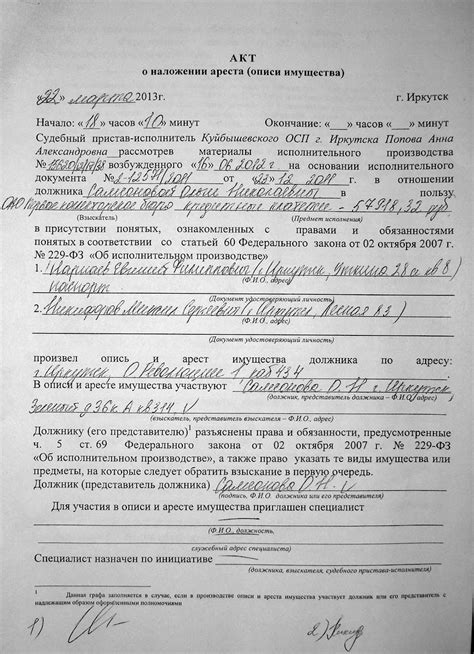 АКТ
о наложении ареста (описи имущества)
«22» марта 2013г. г. Иркутск
Начало: «18» часов «10» минут Окончание: «__» часов «__» минут
Судебный пристав-исполнитель Куйбышевского ОСП г. Иркутска Попова Анна
Александровна рассмотрев материалы исполнительного производства
№ возбужденного «16» 06.2012 г на основании исполнительного
документа № 2-1257/2011 от «23» 12. 2011 г. в отношении
должника Самсоновой Николаевны в пользу
ОАО Первое коллекторское бюро кредитные платежи - 57918,32 руб.
(Взыскатель) (Предмет исполнения)
в присутствии понятых, ознакомленных с правами и обязанностями
понятых в соответствии со статьей 60 Федерального закона от 02 октября 2007 г.
№ 229-ФЗ «Об исполнительном производстве»
1. Филиппович г. Иркутск, 28 кв 8
(Ф.И.О., адрес)
паспорт
(Документ удостоверяющий личность)
2. Никифоров Михаил Сергеевич г Иркутск, Лесная
(Ф.И.О., адрес)
(Документ удостоверяющий личность)
произвел опись и арест имущества должника по адресу:
г. Иркутск, О. Революции 1 каб 434
В описи и аресте имущества участвуют Самсонова О. Н г. Иркутск,
(должник, представитель должника – Ф.И.О.)
Зеленый д 36к. А кв 314, V
(взыскатель, представитель взыскателя – Ф.И.О., адрес)
Должнику (его представителю)1 разъяснены права и обязанности, предусмотренные
ч. 5 ст.69 Федерального закона от 02 октября 2007 г. № 229-ФЗ
«Об исполнительном производстве», а также право указать те виды имущества или
предметы, на которые следует обратить взыскание в первую очередь.
Должник (представитель должника) Самсонова О. Н. V
(подпись, Ф.И.О. должника или его представителя)
Для участия в описи и аресте имущества приглашен специалист
(Ф.И.О., должность,
служебный адрес специалиста)
Специалист назначен по инициативе
(должника, взыскателя, судебного пристава-исполнителя)
1 Данная графа заполняется в случае, если в производстве описи и ареста имущества участвует должник или его представитель с
надлежащим образом оформленными полномочиями
1) 2)